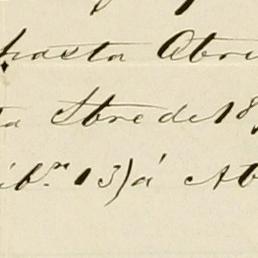 hasta Abri
a Sbre de 18
ibrn 13) á Ab